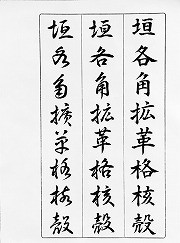 垣各角拡革格核殻
垣各角拡革格核殻
垣各角擴革格核殻